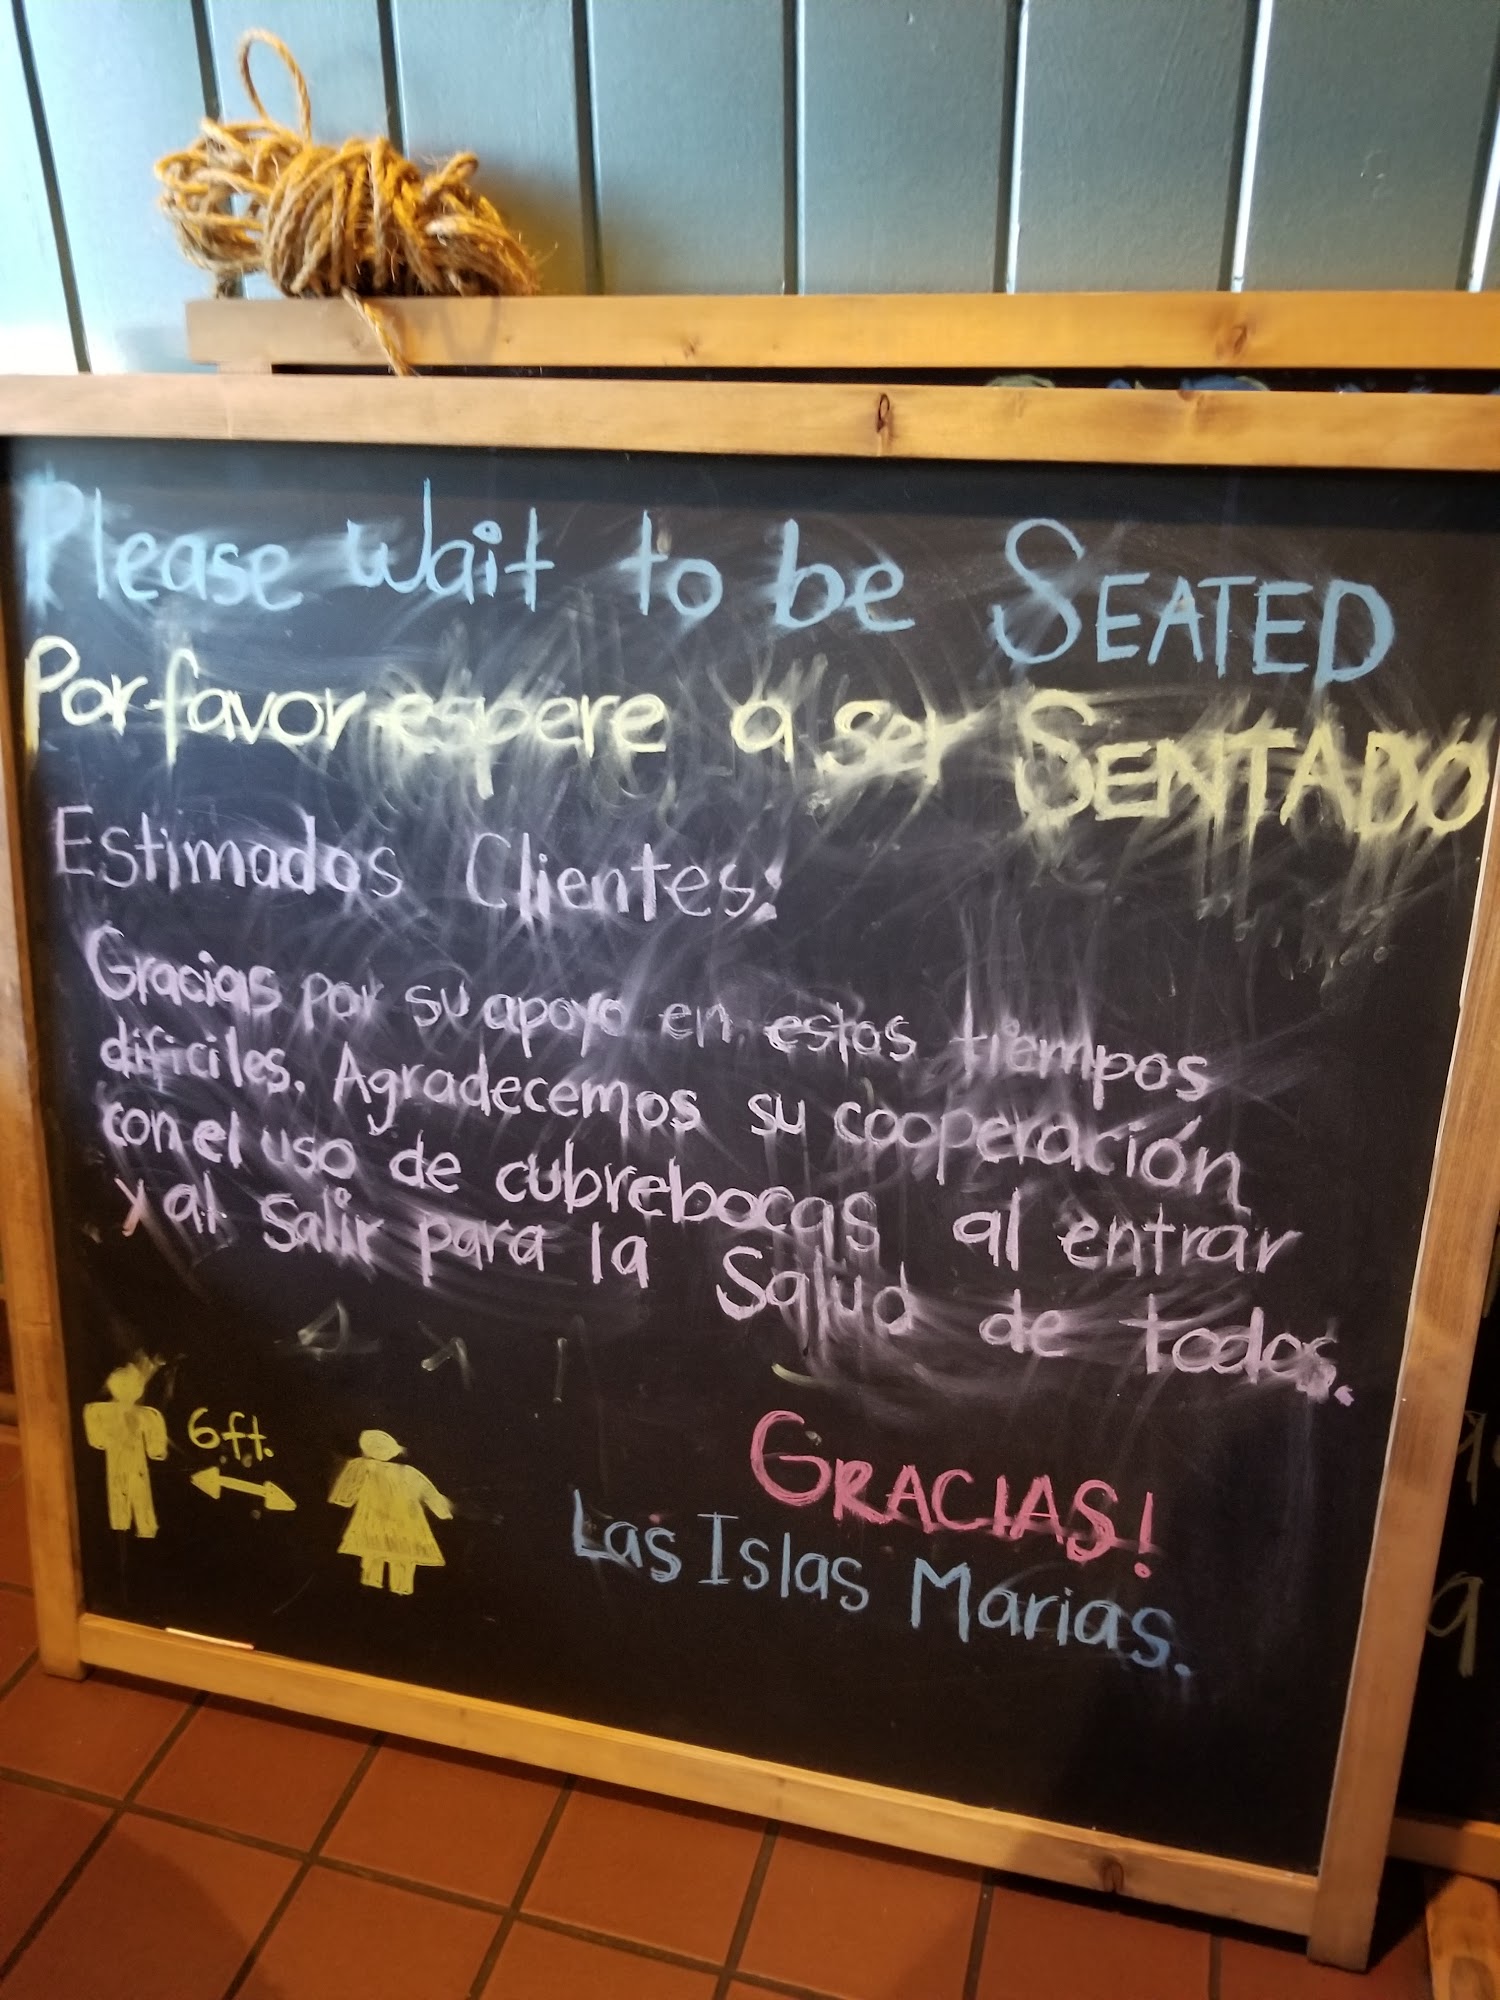 Please wait to be SEATED
Por favor espere a ser SENTADO
Estimados Clientes:
Gracias por su apoyo en estos tiempos
dificiles. Agradecemos su cooperación
con el uso de cubrebocas al entrar
y al salir para la Salud de todos.
6ft.
GRACIAS!
Las Islas Marias.